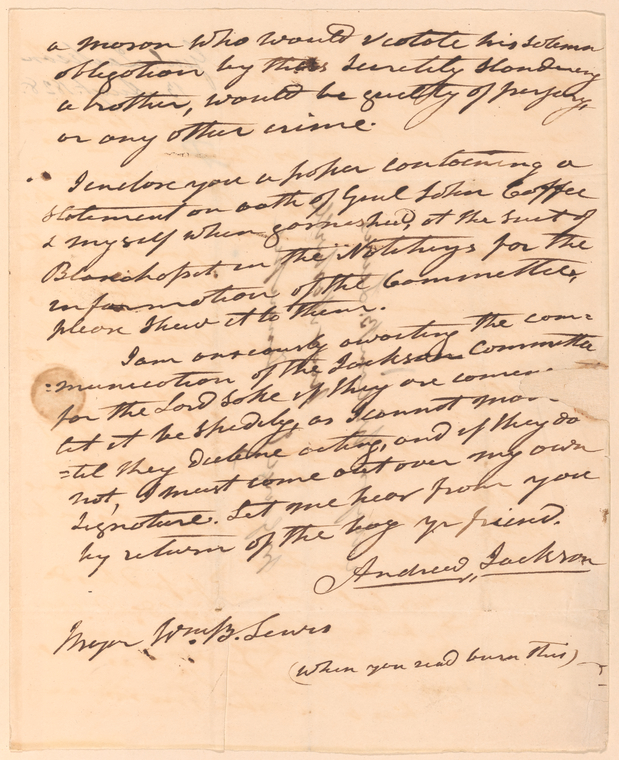 a mason who would violate his solemn
obligation by thus secretly slandering
a brother, would be guilty of perjury,
or any other crime.
I enclose you a paper containing a
statement on oath of Genl John Coffee
& myself when garnasheed, at the suit of
in the Notcheys for the
information of the Committee,
please shew it to them.
I am anxiously awaiting the com=
=munication of the Jackson Committee
for the Lord sake if they are
let it be speedily, as I cannot
=til they decline acting, and if they do
not, I must come out over my own
signature. Let me hear from you
by return of the yr friend.
Andrew Jackson
Major Wm. B. Lewis
(when you read burn this)